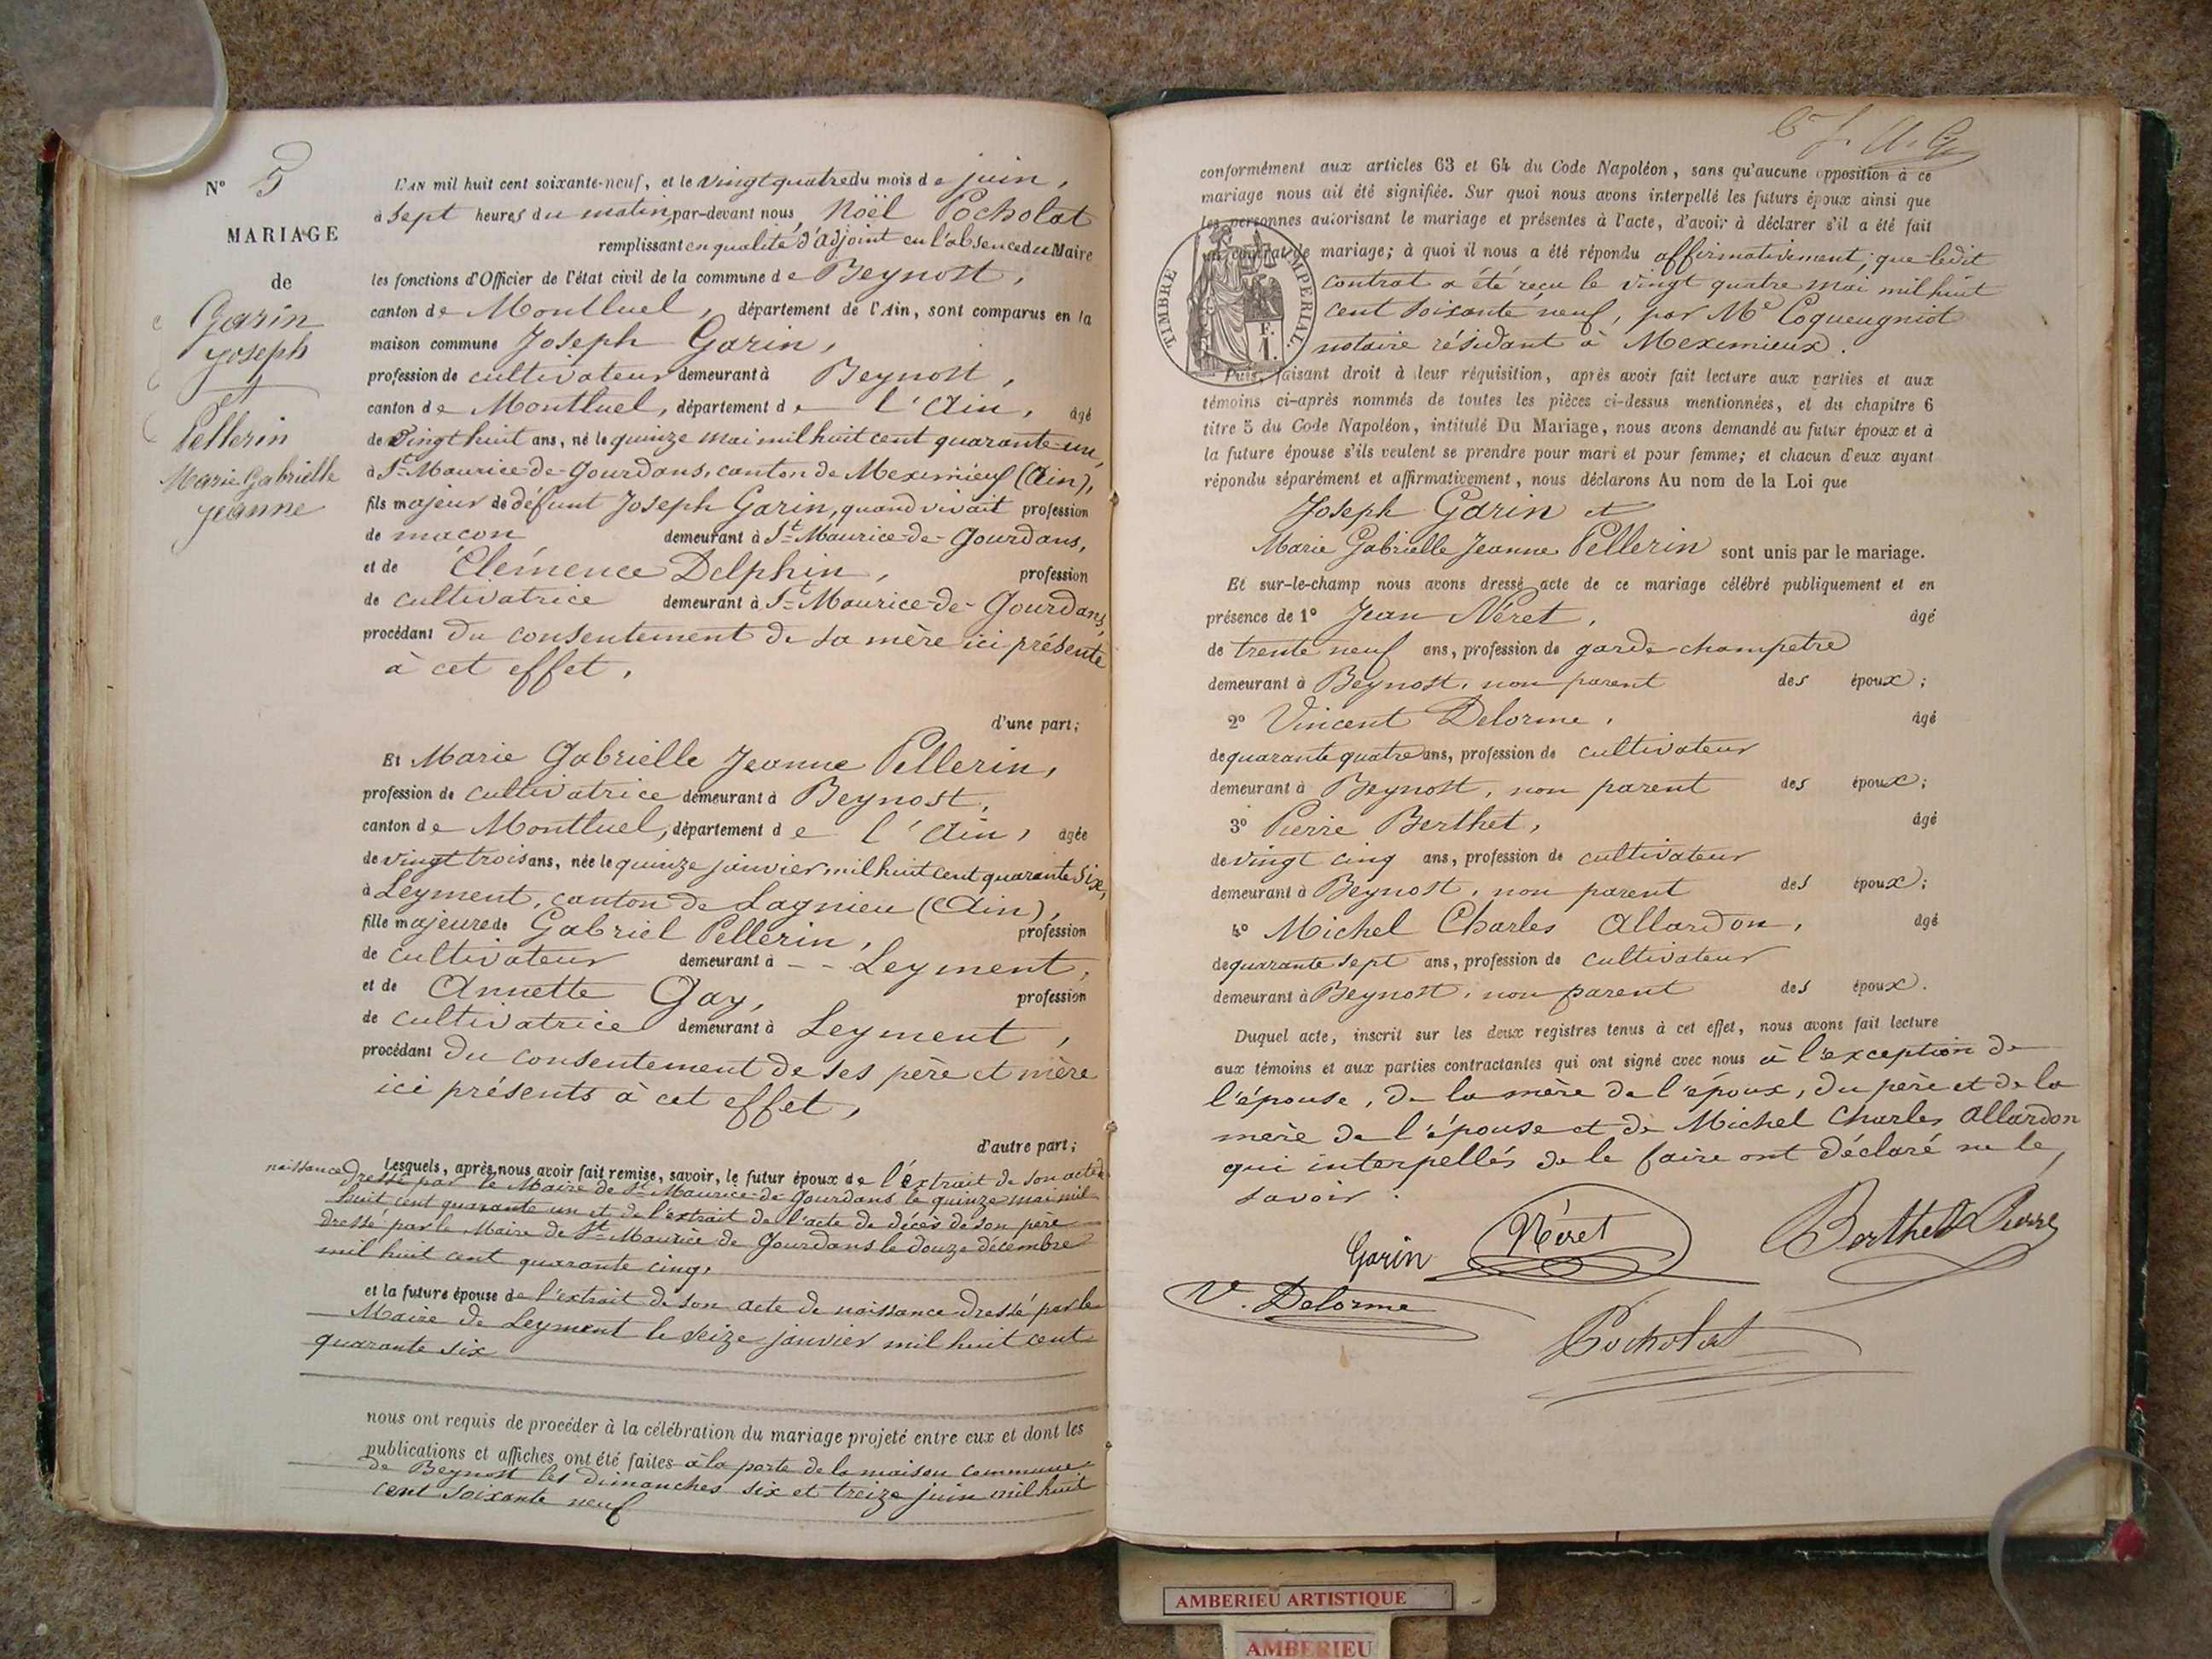 N° 5
MARIAGE
de
Garin
Joseph
et
Pellerin
Marie Gabrielle
Jeanne
L'AN mil huit cent soixante-neuf, et le vingt quatre du mois de juin,
à sept heures du matin, par-devant nous, Noël Pocholat
remplissant en qualité d'adjoint en l'absence du Maire
les fonctions d'Officier de l'état civil de la commune de Beynost,
canton de Montluel, département de l'Ain, sont comparus en la
maison commune Joseph Garin,
profession de cultivateur demeurant à Beynost,
canton de Montluel, département de l'Ain, âgé
de vingt huit ans, né le quinze mai mil huit cent quarante-un,
à St Maurice-de-Gourdans, canton de Meximieux (Ain),
fils majeur de défunt Joseph Garin, quand vivait profession
de maçon demeurant à St Maurice-de-Gourdans,
et de Clémence Delphin, profession
de cultivatrice demeurant à St Maurice-de-Gourdans,
procédant du consentement de sa mère ici présente
à cet effet,
d'une part;
Et Marie Gabrielle Jeanne Pellerin,
profession de cultivatrice demeurant à Beynost,
canton de Montluel, département de l'Ain, âgée
de vingt trois ans, née le quinze janvier mil huit cent quarante six,
à Leyment, canton de Lagnieu (Ain),
fille majeure de Gabriel Pellerin, profession
de cultivateur demeurant à -- Leyment,
et de Annette Gay, profession
de cultivatrice demeurant à Leyment,
procédant du consentement de ses père et mère
ici présents à cet effet,
d'autre part;
Lesquels, après nous avoir fait remise, savoir, le futur époux de l'extrait de son acte de
naissance dressé par le Maire de St Maurice-de-Gourdans le quinze mai mil
huit cent quarante un et de l'extrait de l'acte de décès de son père
dressé par le Maire de St Maurice de Gourdans le douze décembre
mil huit cent quarante cinq,
et la future épouse de l'extrait de son acte de naissance dressé par le
Maire de Leyment le seize janvier mil huit cent
quarante six
nous ont requis de procéder à la célébration du mariage projeté entre eux et dont les
publications et affiches ont été faites à la porte de la maison commune
de Beynost les dimanches six et treize juin mil huit
cent soixante neuf
conformément aux articles 63 et 64 du Code Napoléon, sans qu'aucune opposition à ce
mariage nous ait été signifiée. Sur quoi nous avons interpellé les futurs époux ainsi que
les personnes autorisant le mariage et présentes à l'acte, d'avoir à déclarer s'il a été fait
un contrat de mariage; à quoi il nous a été répondu affirmativement, que ledit
contrat a été reçu le vingt quatre mai mil huit
cent soixante neuf, par Me Coqueugniot
notaire résidant à Meximieux.
TIMBRE IMPERIAL.
F.
I.
Puis, faisant droit à leur réquisition, après avoir fait lecture aux parties et aux
témoins ci-après nommés de toutes les pièces ci-dessus mentionnées, et du chapitre 6
titre 5 du Code Napoléon, intitulé Du Mariage, nous avons demandé au futur époux et à
la future épouse s'ils veulent se prendre pour mari et pour femme; et chacun d'eux ayant
répondu séparément et affirmativement, nous déclarons Au nom de la Loi que
Joseph Garin et
Marie Gabrielle Jeanne Pellerin sont unis par le mariage.
Et sur-le-champ nous avons dressé acte de ce mariage célébré publiquement et en
présence de 1° Jean Néret, âgé
de trente neuf ans, profession de garde champetre
demeurant à Beynost, non parent des époux;
2° Vincent Delorme, âgé
de quarante quatre ans, profession de cultivateur
demeurant à Beynost, non parent des époux;
3° Pierre Berthet, âgé
de vingt cinq ans, profession de cultivateur
demeurant à Beynost, non parent des époux;
4° Michel Charles Allardon, âgé
de quarante sept ans, profession de cultivateur
demeurant à Beynost, non parent des époux.
Duquel acte, inscrit sur les deux registres tenus à cet effet, nous avons fait lecture
aux témoins et aux parties contractantes qui ont signé avec nous à l'exception de
l'épouse, de la mère de l'époux, du père et de la
mère de l'épouse et de Michel Charles Allardon
qui interpellés de le faire ont déclaré ne le
savoir.
Garin Néret Berthet Pierre
V. Delorme
Pocholat
AMBERIEU ARTISTIQUE
AMBERIEU